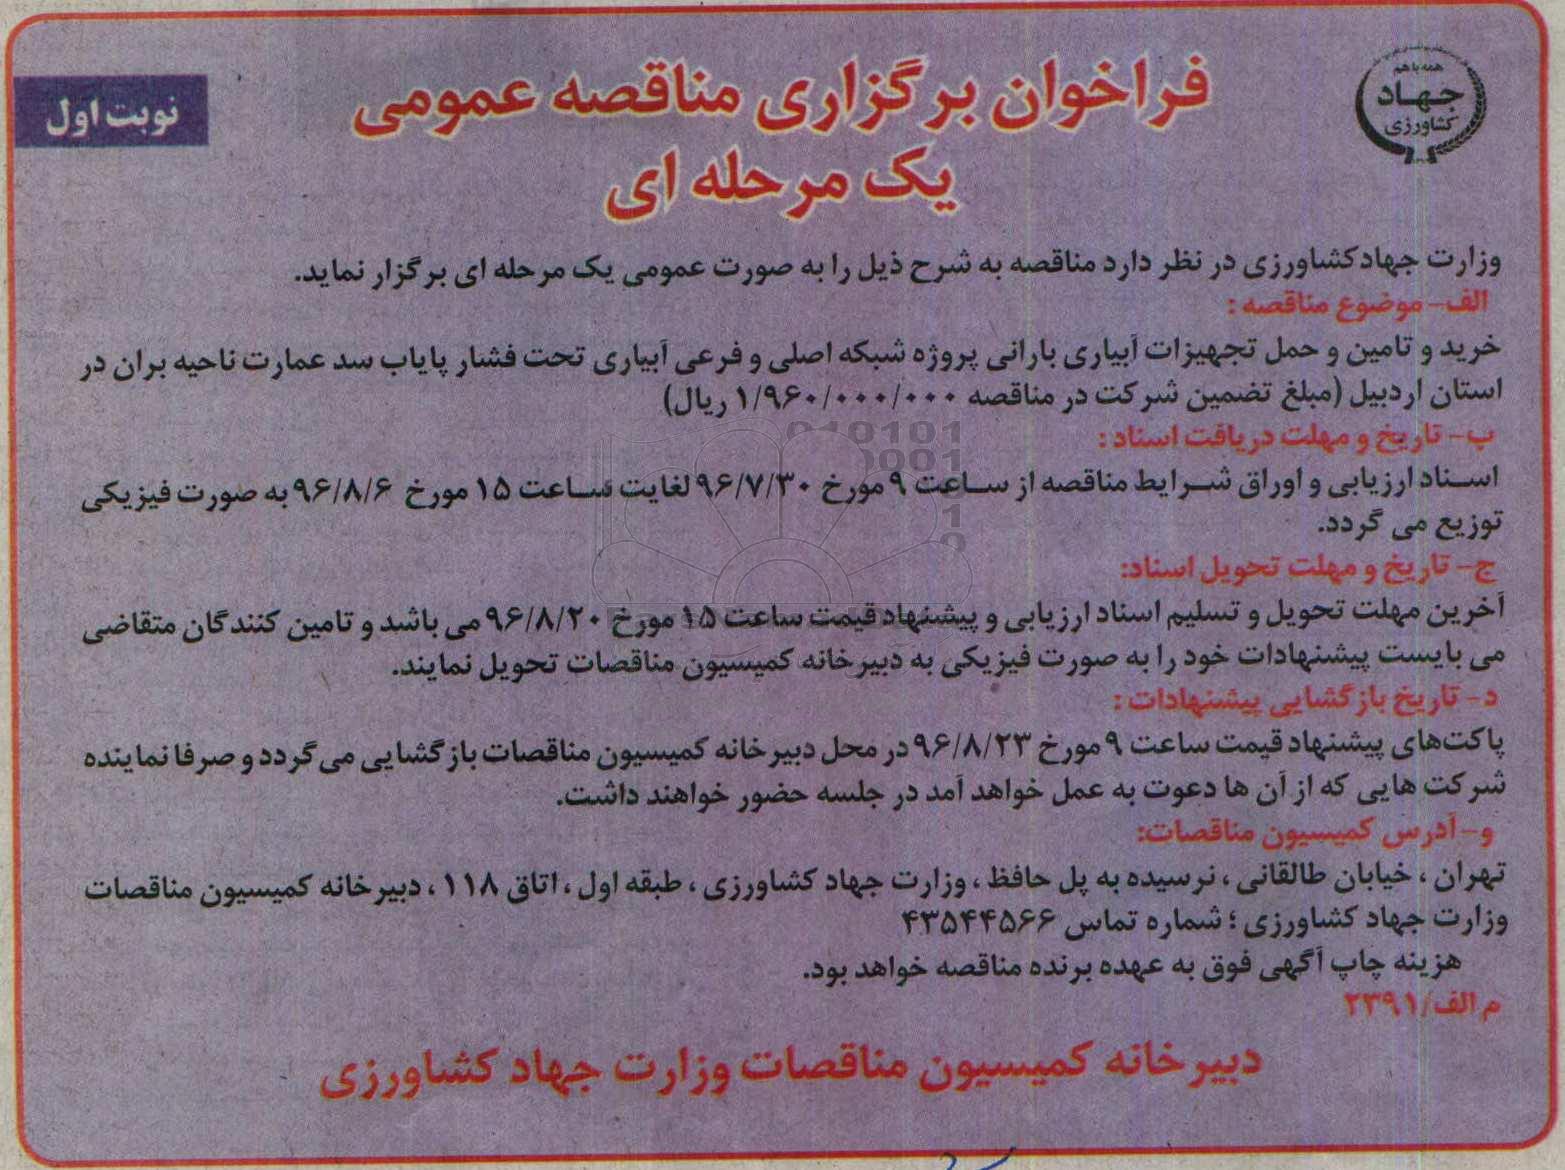 همه با هم
جهاد
کشاورزی
نوبت اول
فراخوان برگزاری مناقصه عمومی
یک مرحله ای
وزارت جهاد کشاورزی در نظر دارد مناقصه به شرح ذیل را به صورت عمومی یک مرحله ای برگزار نماید.
الف- موضوع مناقصه :
خرید و تامین و حمل تجهیزات آبیاری بارانی پروژه شبکه اصلی و فرعی آبیاری تحت فشار پایاب سد عمارت ناحیه بران در
استان اردبیل (مبلغ تضمین شرکت در مناقصه ۱/۹۶۰/۰۰۰/۰۰۰ ریال)
ب- تاریخ و مهلت دریافت اسناد :
اسناد ارزیابی و اوراق شرایط مناقصه از ساعت ۹ مورخ ۹۶/۷/۳۰ لغایت ساعت ۱۵ مورخ ۹۶/۸/۶ به صورت فیزیکی
توزیع می گردد.
ج- تاریخ و مهلت تحویل اسناد:
آخرین مهلت تحویل و تسلیم اسناد ارزیابی و پیشنهاد قیمت ساعت ۱۵ مورخ ۹۶/۸/۲۰ می باشد و تامین کنندگان متقاضی
می بایست پیشنهادات خود را به صورت فیزیکی به دبیرخانه کمیسیون مناقصات تحویل نمایند.
د- تاریخ بازگشایی پیشنهادات :
پاکت‌های پیشنهاد قیمت ساعت ۹ مورخ ۹۶/۸/۲۳ در محل دبیرخانه کمیسیون مناقصات بازگشایی می گردد و صرفا نماینده
شرکت هایی که از آن ها دعوت به عمل خواهد آمد در جلسه حضور خواهند داشت.
و- آدرس کمیسیون مناقصات:
تهران ، خیابان طالقانی ، نرسیده به پل حافظ ، وزارت جهاد کشاورزی ، طبقه اول ، اتاق ۱۱۸ ، دبیرخانه کمیسیون مناقصات
وزارت جهاد کشاورزی ؛ شماره تماس ۴۳۵۴۴۵۶۶
هزینه چاپ آگهی فوق به عهده برنده مناقصه خواهد بود.
م الف/۲۳۹۱
دبیرخانه کمیسیون مناقصات وزارت جهاد کشاورزی